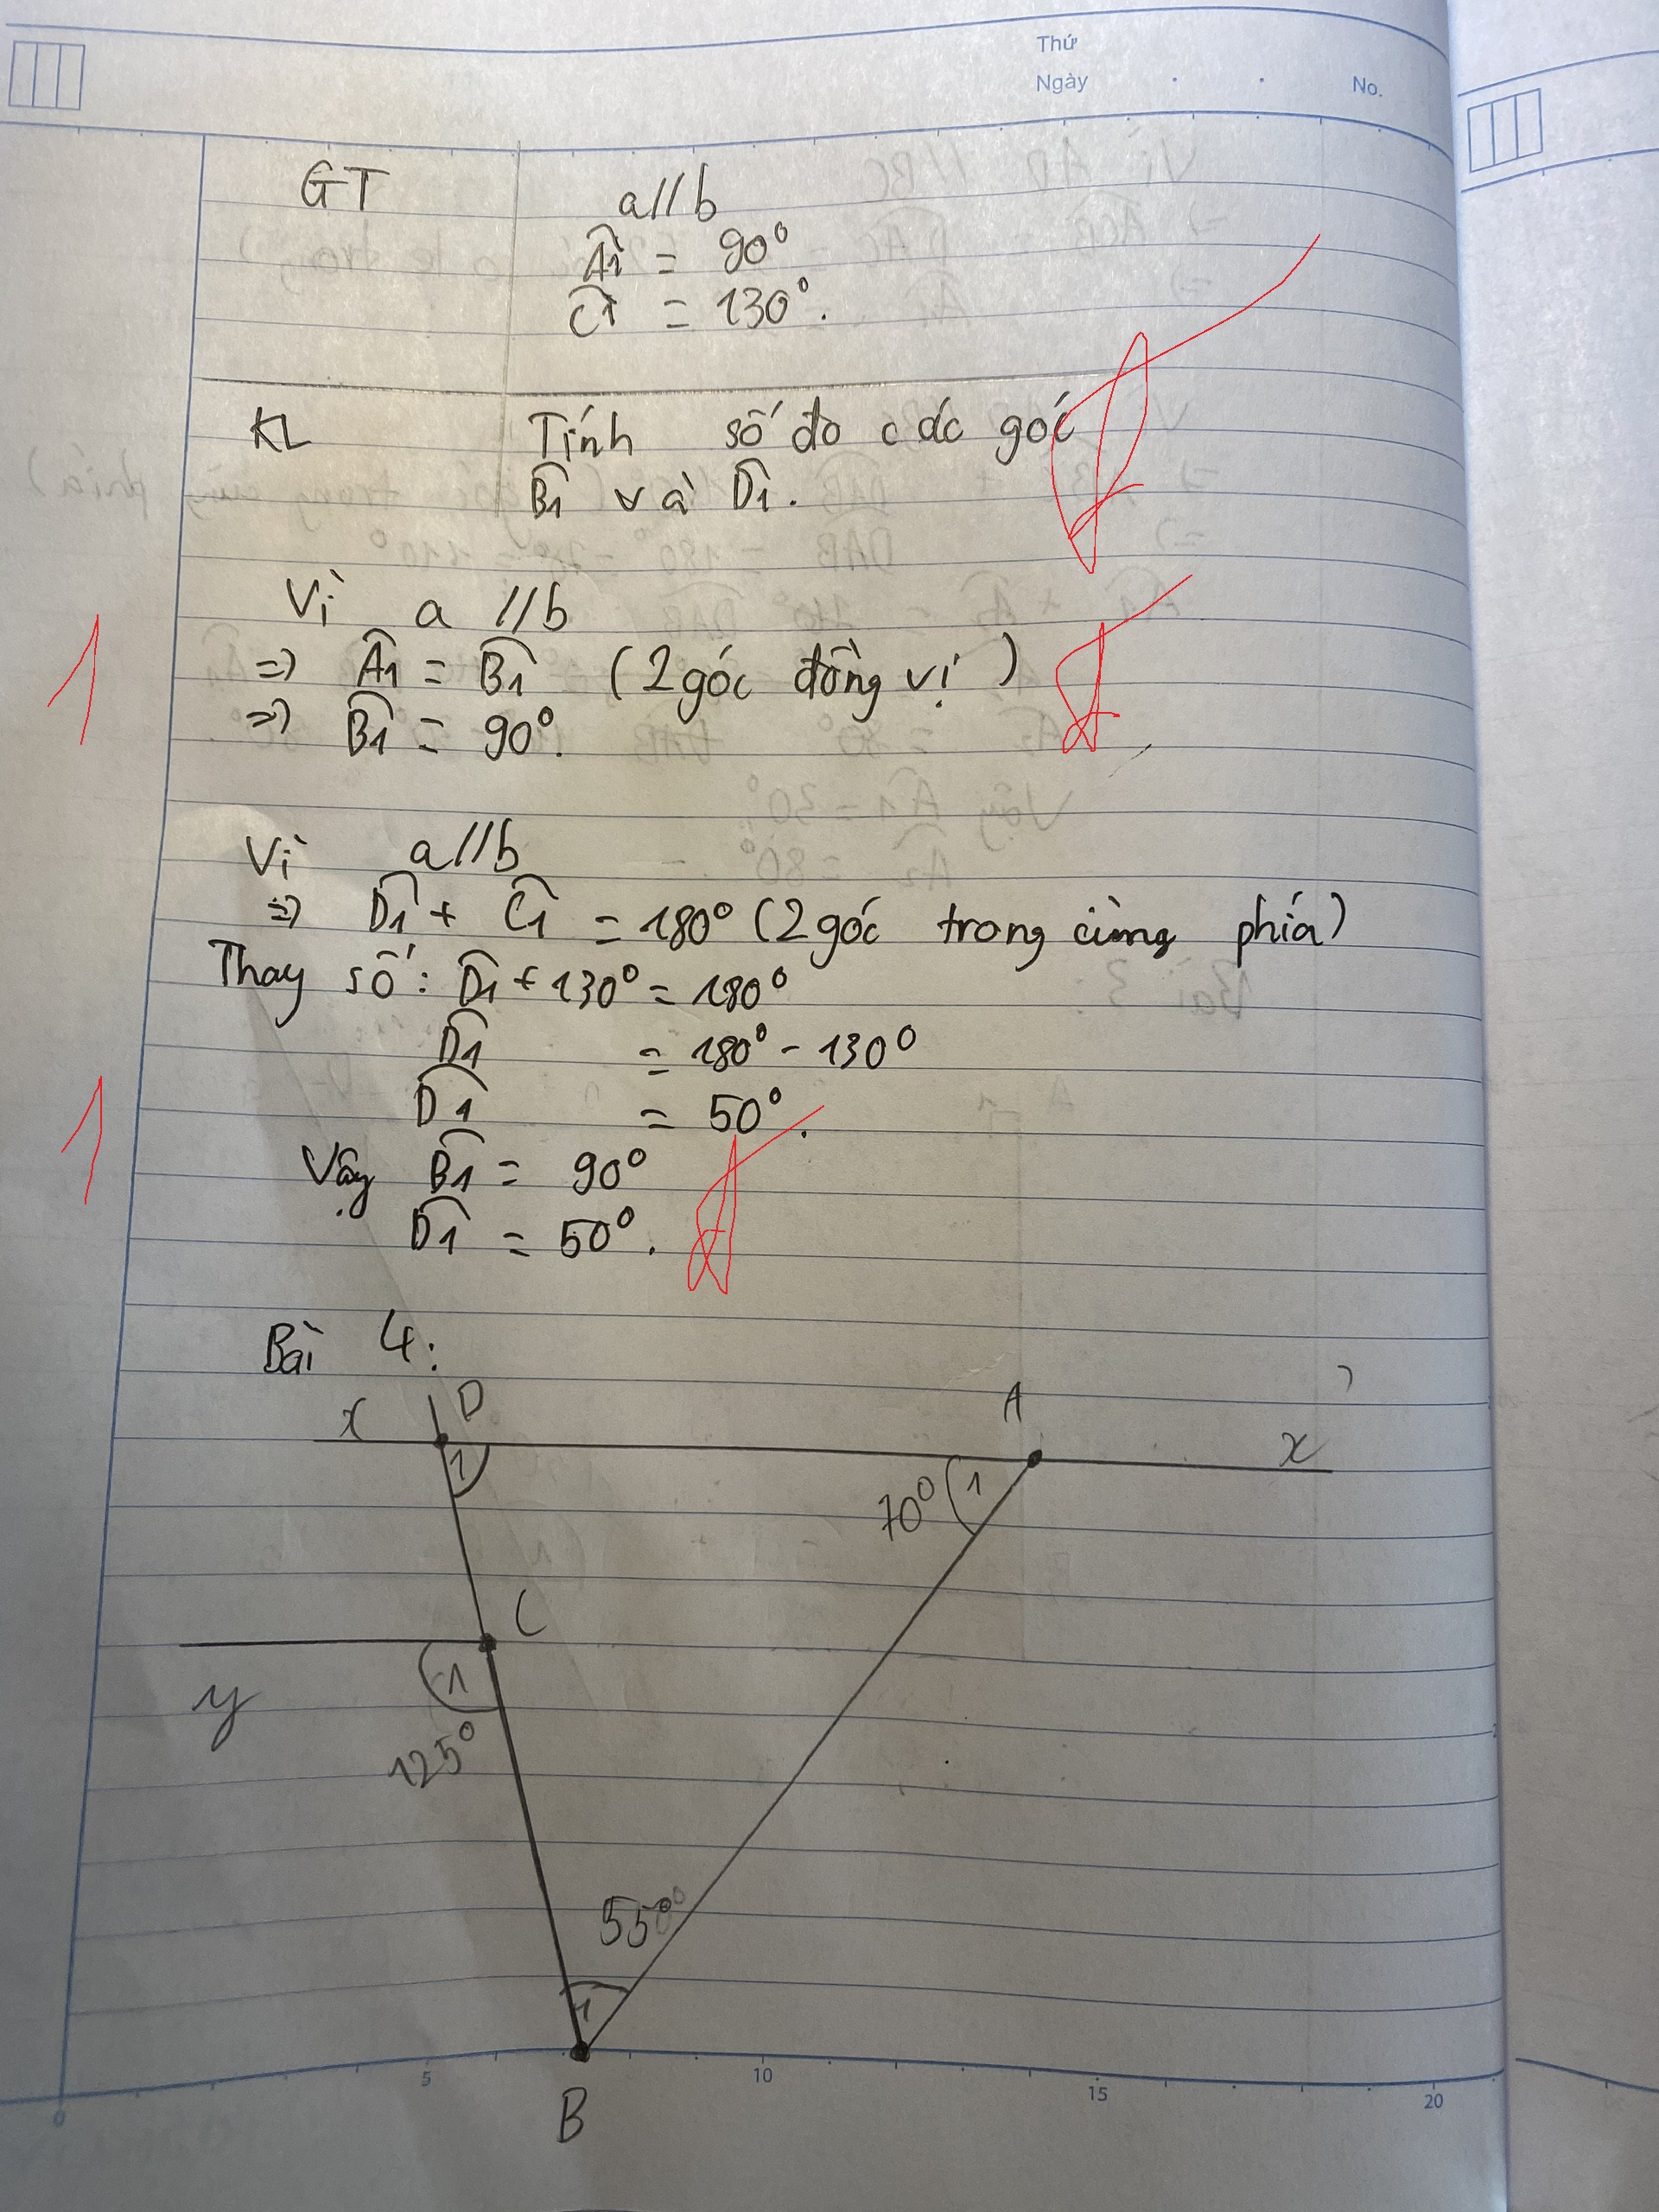 Thứ
Ngày . . No.
GT a//b
Â1 = 90°
Ĉ1 = 130°.
KL Tính số đo các góc
B̂1 và D̂1.
Vì a //b
=> Â1 = B̂1 (2 góc đồng vị)
=> B̂1 = 90°.
1
Vì a//b
=> D̂1 + Ĉ1 = 180° (2 góc trong cùng phía)
Thay số: D̂1 + 130° = 180°
D̂1 = 180° - 130°
D̂1 = 50°.
1
Vậy B̂1 = 90°
D̂1 = 50°.
Bài 4:
x D A x
1 70° 1
C
y 1
125°
55°
1
0 5 10 15 20
B